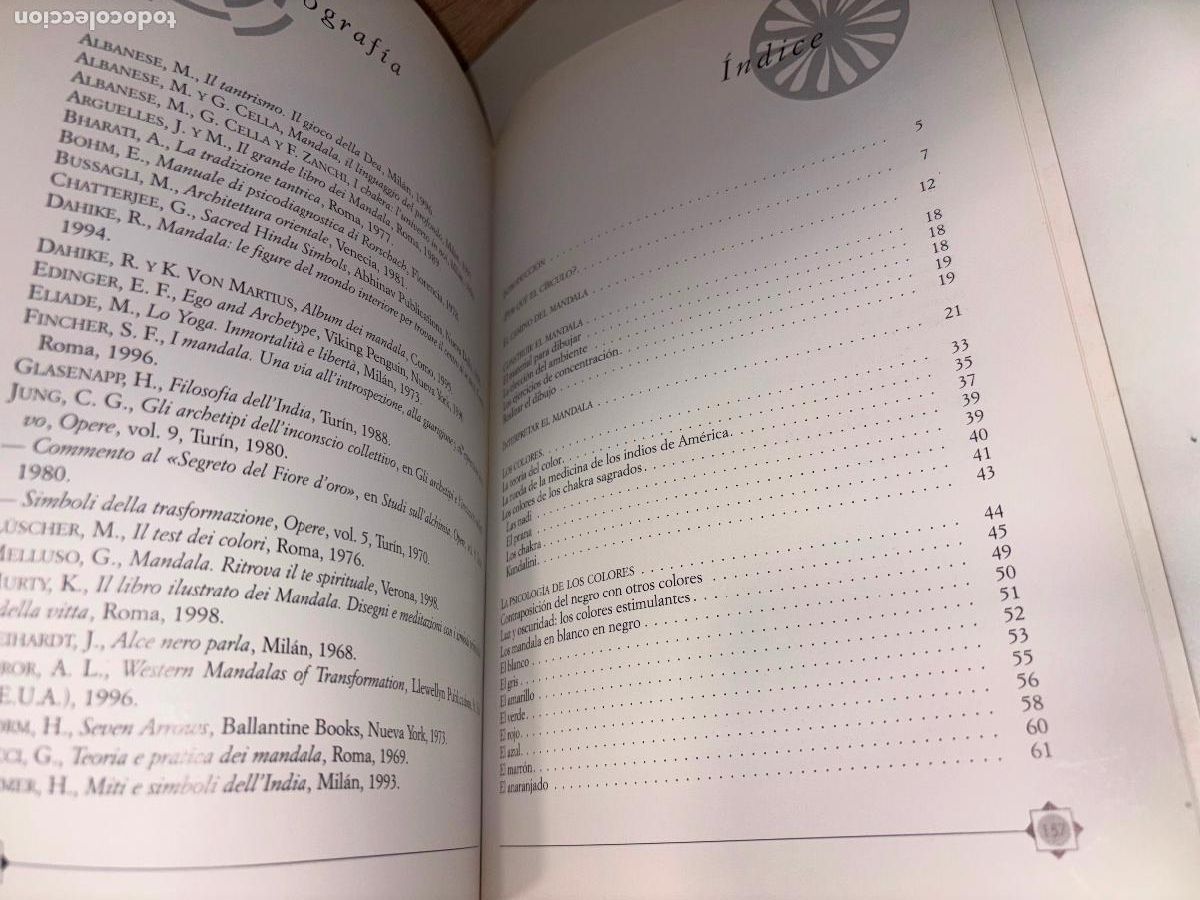 todocoleccion
ografía
ALBANESE, M., Il tantrismo. Il gioco della Dea, Milán, 1996.
ALBANESE, M. Y G. CELLA, Mandala, il linguaggio del profondo, Milán,
ALBANESE, M., G. CELLA Y F. ZANCHI, I chakra: l'universo in noi, Milán,
ARGUELLES, J. Y M., Il grande libro dei Mandala, Roma, 1989.
BHARATI, A., La tradizione tantrica, Roma, 1977.
BOHM, E., Manuale di psicodiagnostica di Rorschach, Florencia, 1978.
BUSSAGLI, M., Architettura orientale, Venecia, 1981.
CHATTERJEE, G., Sacred Hindu Simbols, Abhinav Publications, Nueva
DAHIKE, R., Mandala: le figure del mondo interiore per trovare il centro
1994.
DAHIKE, R. Y K. VON MARTIUS, Album dei mandala, Como, 1995.
EDINGER, E. F., Ego and Archetype, Viking Penguin, Nueva York,
ELIADE, M., Lo Yoga. Inmortalità e libertà, Milán, 1973.
FINCHER, S. F., I mandala. Una via all'introspezione, alla guarigione
Roma, 1996.
GLASENAPP, H., Filosofia dell'India, Turín, 1988.
JUNG, C. G., Gli archetipi dell'inconscio collettivo, en Gli archetipi e l'inconscio
vo, Opere, vol. 9, Turín, 1980.
— Commento al «Segreto del Fiore d'oro», en Studi sull'alchimia, Opere, vol.
1980.
— Simboli della trasformazione, Opere, vol. 5, Turín, 1970.
LÜSCHER, M., Il test dei colori, Roma, 1976.
MELLUSO, G., Mandala. Ritrova il te spirituale, Verona, 1998.
MURTY, K., Il libro ilustrato dei Mandala. Disegni e meditazioni con i
della vitta, Roma, 1998.
EIHARDT, J., Alce nero parla, Milán, 1968.
ROR, A. L., Western Mandalas of Transformation, Llewellyn
E.U.A.), 1996.
ORM, H., Seven Arrows, Ballantine Books, Nueva York, 1973.
CCI, G., Teoria e pratica dei mandala, Roma, 1969.
MER, H., Miti e simboli dell'India, Milán, 1993.
Índice
INTRODUCCIÓN 5
¿POR QUÉ EL CÍRCULO? 7
EL CAMINO DEL MANDALA 12
CONSTRUIR EL MANDALA 18
El material para dibujar 18
La elección del ambiente 18
Los ejercicios de concentración 19
Realizar el dibujo 19
INTERPRETAR EL MANDALA 21
LOS COLORES 33
La teoría del color 35
La rueda de la medicina de los indios de América 37
Los colores de los chakra sagrados 39
Las nadi 39
El prana 40
Los chakra 41
Kundalini 43
LA PSICOLOGÍA DE LOS COLORES 44
Contraposición del negro con otros colores 45
Luz y oscuridad: los colores estimulantes 49
Los mandala en blanco en negro 50
El blanco 51
El gris 52
El amarillo 53
El verde 55
El rojo 56
El azul 58
El marrón 60
El anaranjado 61
157